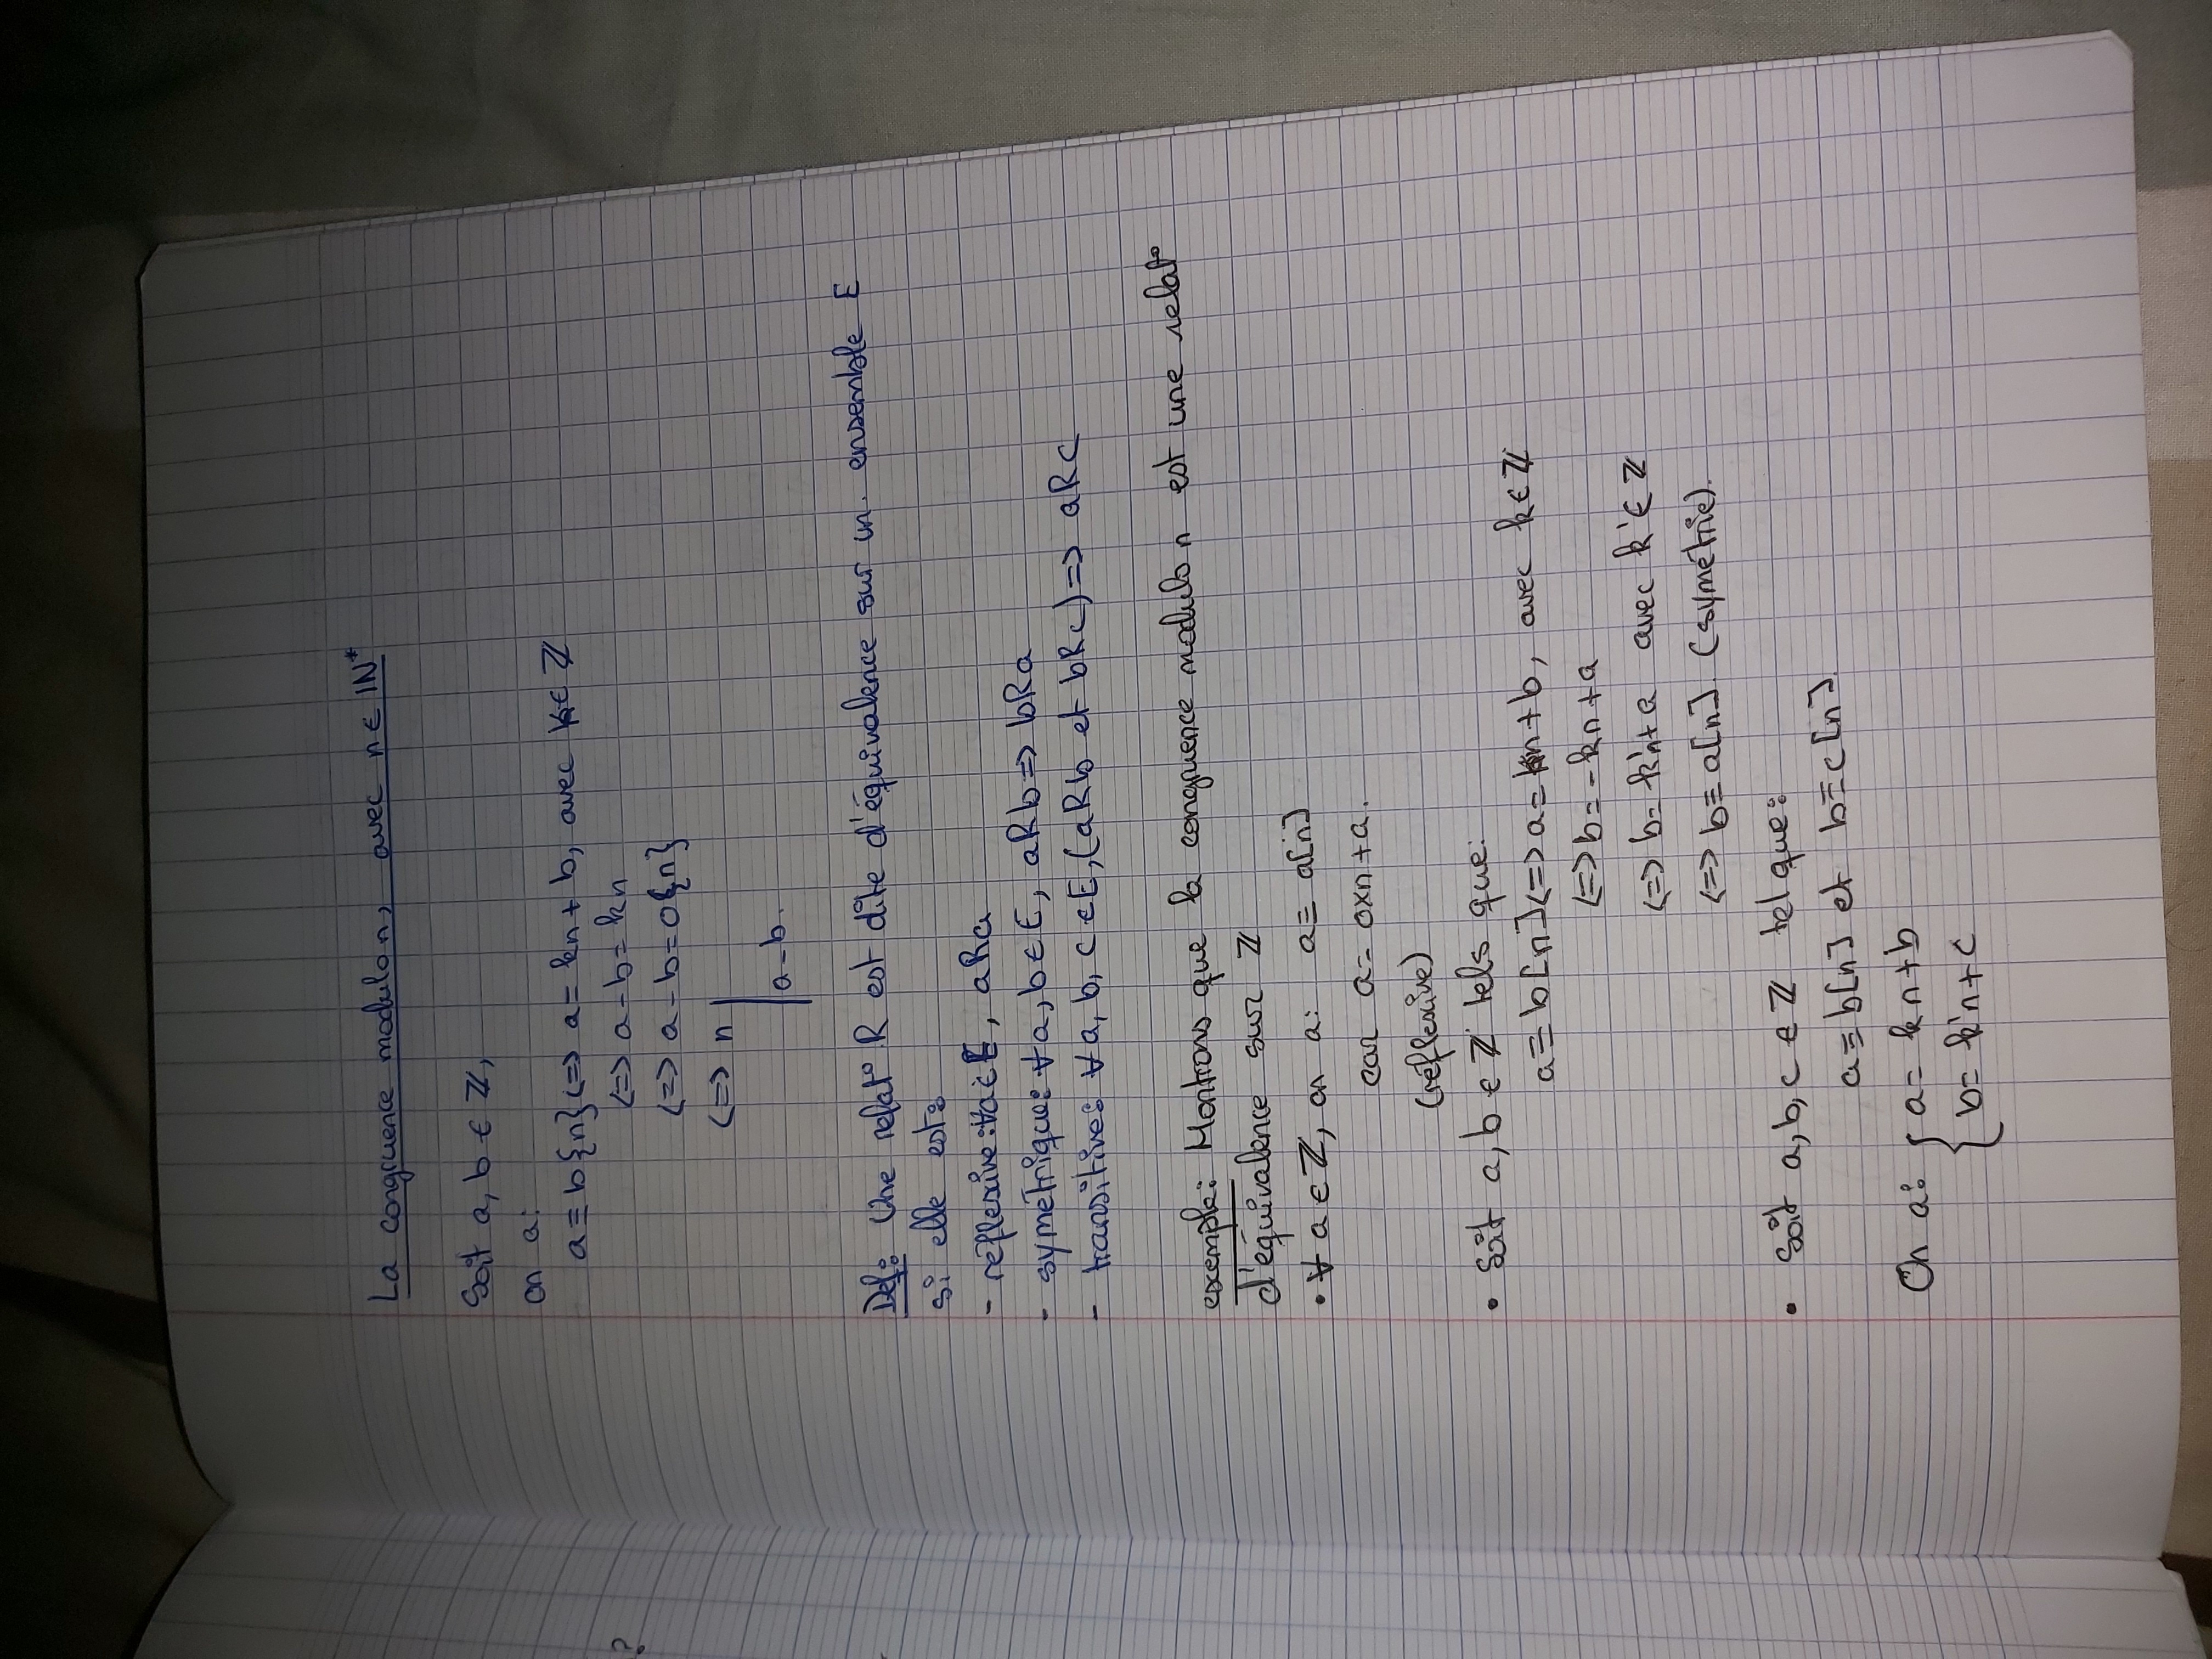 La congruence modulo n, avec n ∈ IN*
Soit a, b ∈ ℤ,
on a:
a ≡ b{n} <=> a = kn + b, avec k ∈ ℤ
<=> a - b = kn
<=> a - b = 0{n}
<=> n |
a - b.
?
Def: Une relat° R est dite d'équivalence sur un. ensemble E
si elle est:
- réflexive: ∀a ∈ E, aRa
- symétrique: ∀a, b ∈ E, aRb => bRa
- transitive: ∀a, b, c ∈ E, (aRb et bRc) => aRc
exemple: Montrons que la congruence modulo n est une relat°
d'équivalence sur ℤ
• ∀ a ∈ ℤ, on a: a ≡ a[n]
car a = 0xn + a.
(réflexive)
• Soit a, b ∈ ℤ tels que:
a ≡ b[n] <=> a = kn + b, avec k ∈ ℤ
<=> b = -kn + a
<=> b = k'n + a avec k' ∈ ℤ
<=> b ≡ a[n]. (symétrie).
• Soit a, b, c ∈ ℤ tel que:
a ≡ b[n] et b ≡ c[n]
On a: { a = kn + b
b = k'n + c